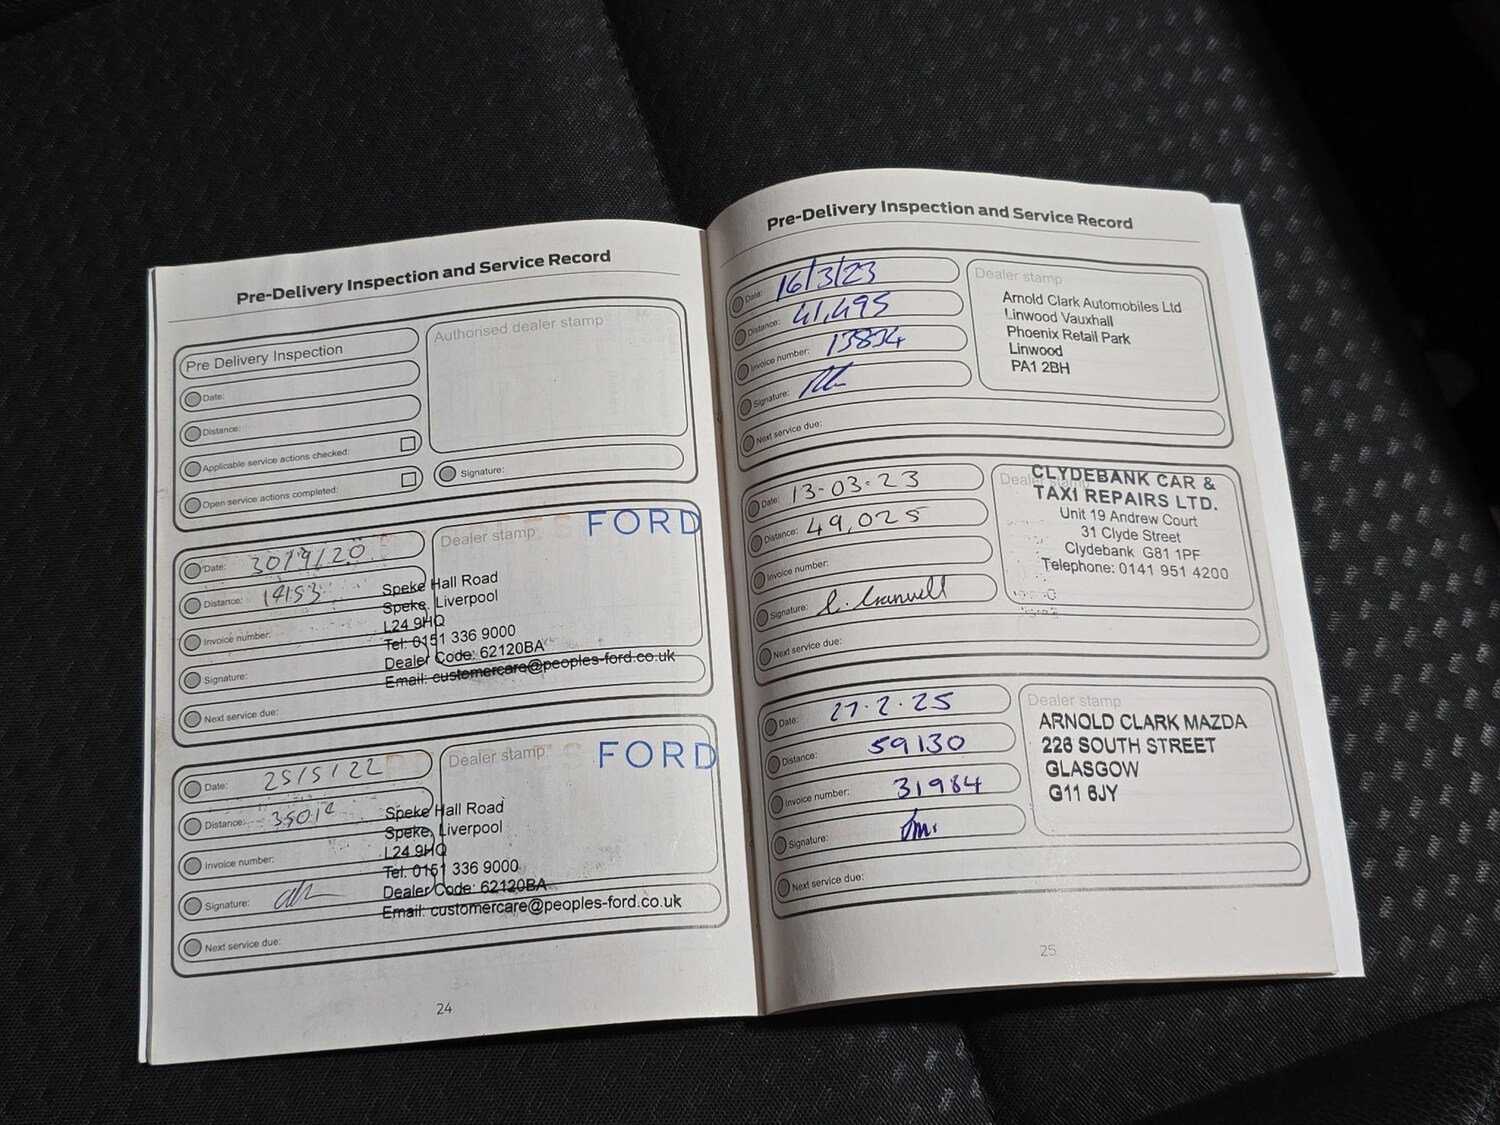 Pre-Delivery Inspection and Service Record
Pre Delivery Inspection
Date:
Distance:
Applicable service actions checked:
Open service actions completed:
Authorised dealer stamp
Signature:
Date: 30/9/20
Distance: 14153
Invoice number:
Signature:
Next service due:
Dealer stamp
PEOPLES FORD
Speke Hall Road
Speke, Liverpool
L24 9HQ
Tel: 0151 336 9000
Dealer Code: 62120BA
Email: customercare@peoples-ford.co.uk
Date: 25/5/22
Distance: 35012
Invoice number:
Signature:
Next service due:
Dealer stamp
PEOPLES FORD
Speke Hall Road
Speke, Liverpool
L24 9HQ
Tel: 0151 336 9000
Dealer Code: 62120BA
Email: customercare@peoples-ford.co.uk
24
Pre-Delivery Inspection and Service Record
Date: 16/3/23
Distance: 41,495
Invoice number:
Signature:
Next service due:
Dealer stamp
Arnold Clark Automobiles Ltd
Linwood Vauxhall
Phoenix Retail Park
Linwood
PA1 2BH
Date: 13-03-23
Distance: 49,025
Invoice number:
Signature:
Next service due:
Dealer stamp
CLYDEBANK CAR &
TAXI REPAIRS LTD.
Unit 19 Andrew Court
31 Clyde Street
Clydebank G81 1PF
Telephone: 0141 951 4200
Date: 27.2.25
Distance: 59130
Invoice number: 31984
Signature:
Next service due:
Dealer stamp
ARNOLD CLARK MAZDA
226 SOUTH STREET
GLASGOW
G11 6JY
25